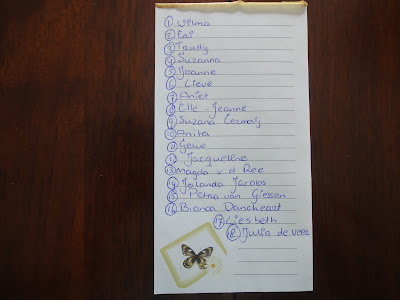 1 Wilma
2 Eai
3 Trudy
4 Suzanna
5 Joanne
6 Lieve
7 Aniet
8 Elle-Jeanne
9 Suzana
10 Anita
11
12 Jacqueline
13 Magda v d Ree
14 Jolanda Jacobs
15 Petra van Giesen
16 Bianca Danckaert
17 Liesbeth
18 Julia de Veer